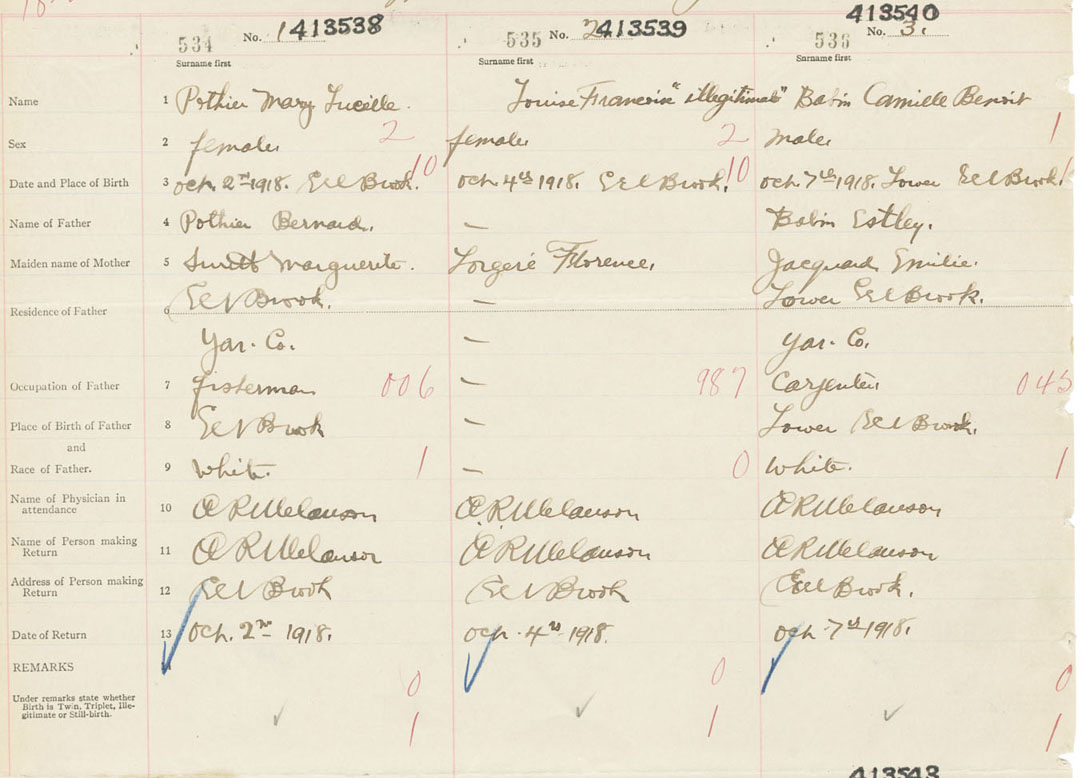 413540
534 No. 1 413538 535 No. 2 413539 536 No. 3.
Surname first Surname first Surname first
Name 1 Pothier Mary Lucille. Louise Francoise "illegitimate" Babin Camille Benoit
Sex 2 female 2 female 2 male 1
Date and Place of Birth 3 Oct. 2nd 1918. Eel Brook. 10 Oct. 4th 1918. Eel Brook. 10 Oct. 7th 1918. Lower Eel Brook.
Name of Father 4 Pothier Bernard. — Babin Estley.
Maiden name of Mother 5 Surette Marguerite. Florence. Jacquard Emilie.
Eel Brook. — Lower Eel Brook.
Residence of Father 6
Yar. Co. — Yar. Co.
Occupation of Father 7 fisherman 006 — 987 Carpenter 045
Place of Birth of Father 8 Eel Brook — Lower Eel Brook.
and
Race of Father. 9 white. 1 — 0 white. 1
Name of Physician in
attendance 10 A R Melanson A R Melanson A R Melanson
Name of Person making
Return 11 A R Melanson A R Melanson A R Melanson
Address of Person making
Return 12 Eel Brook Eel Brook Eel Brook.
Date of Return 13 Oct. 2nd 1918. Oct. 4th 1918. Oct 7th 1918.
REMARKS 14
0 0 0
Under remarks state whether
Birth is Twin, Triplet, Ille-
gitimate or Still-birth.
1 1 1
413543